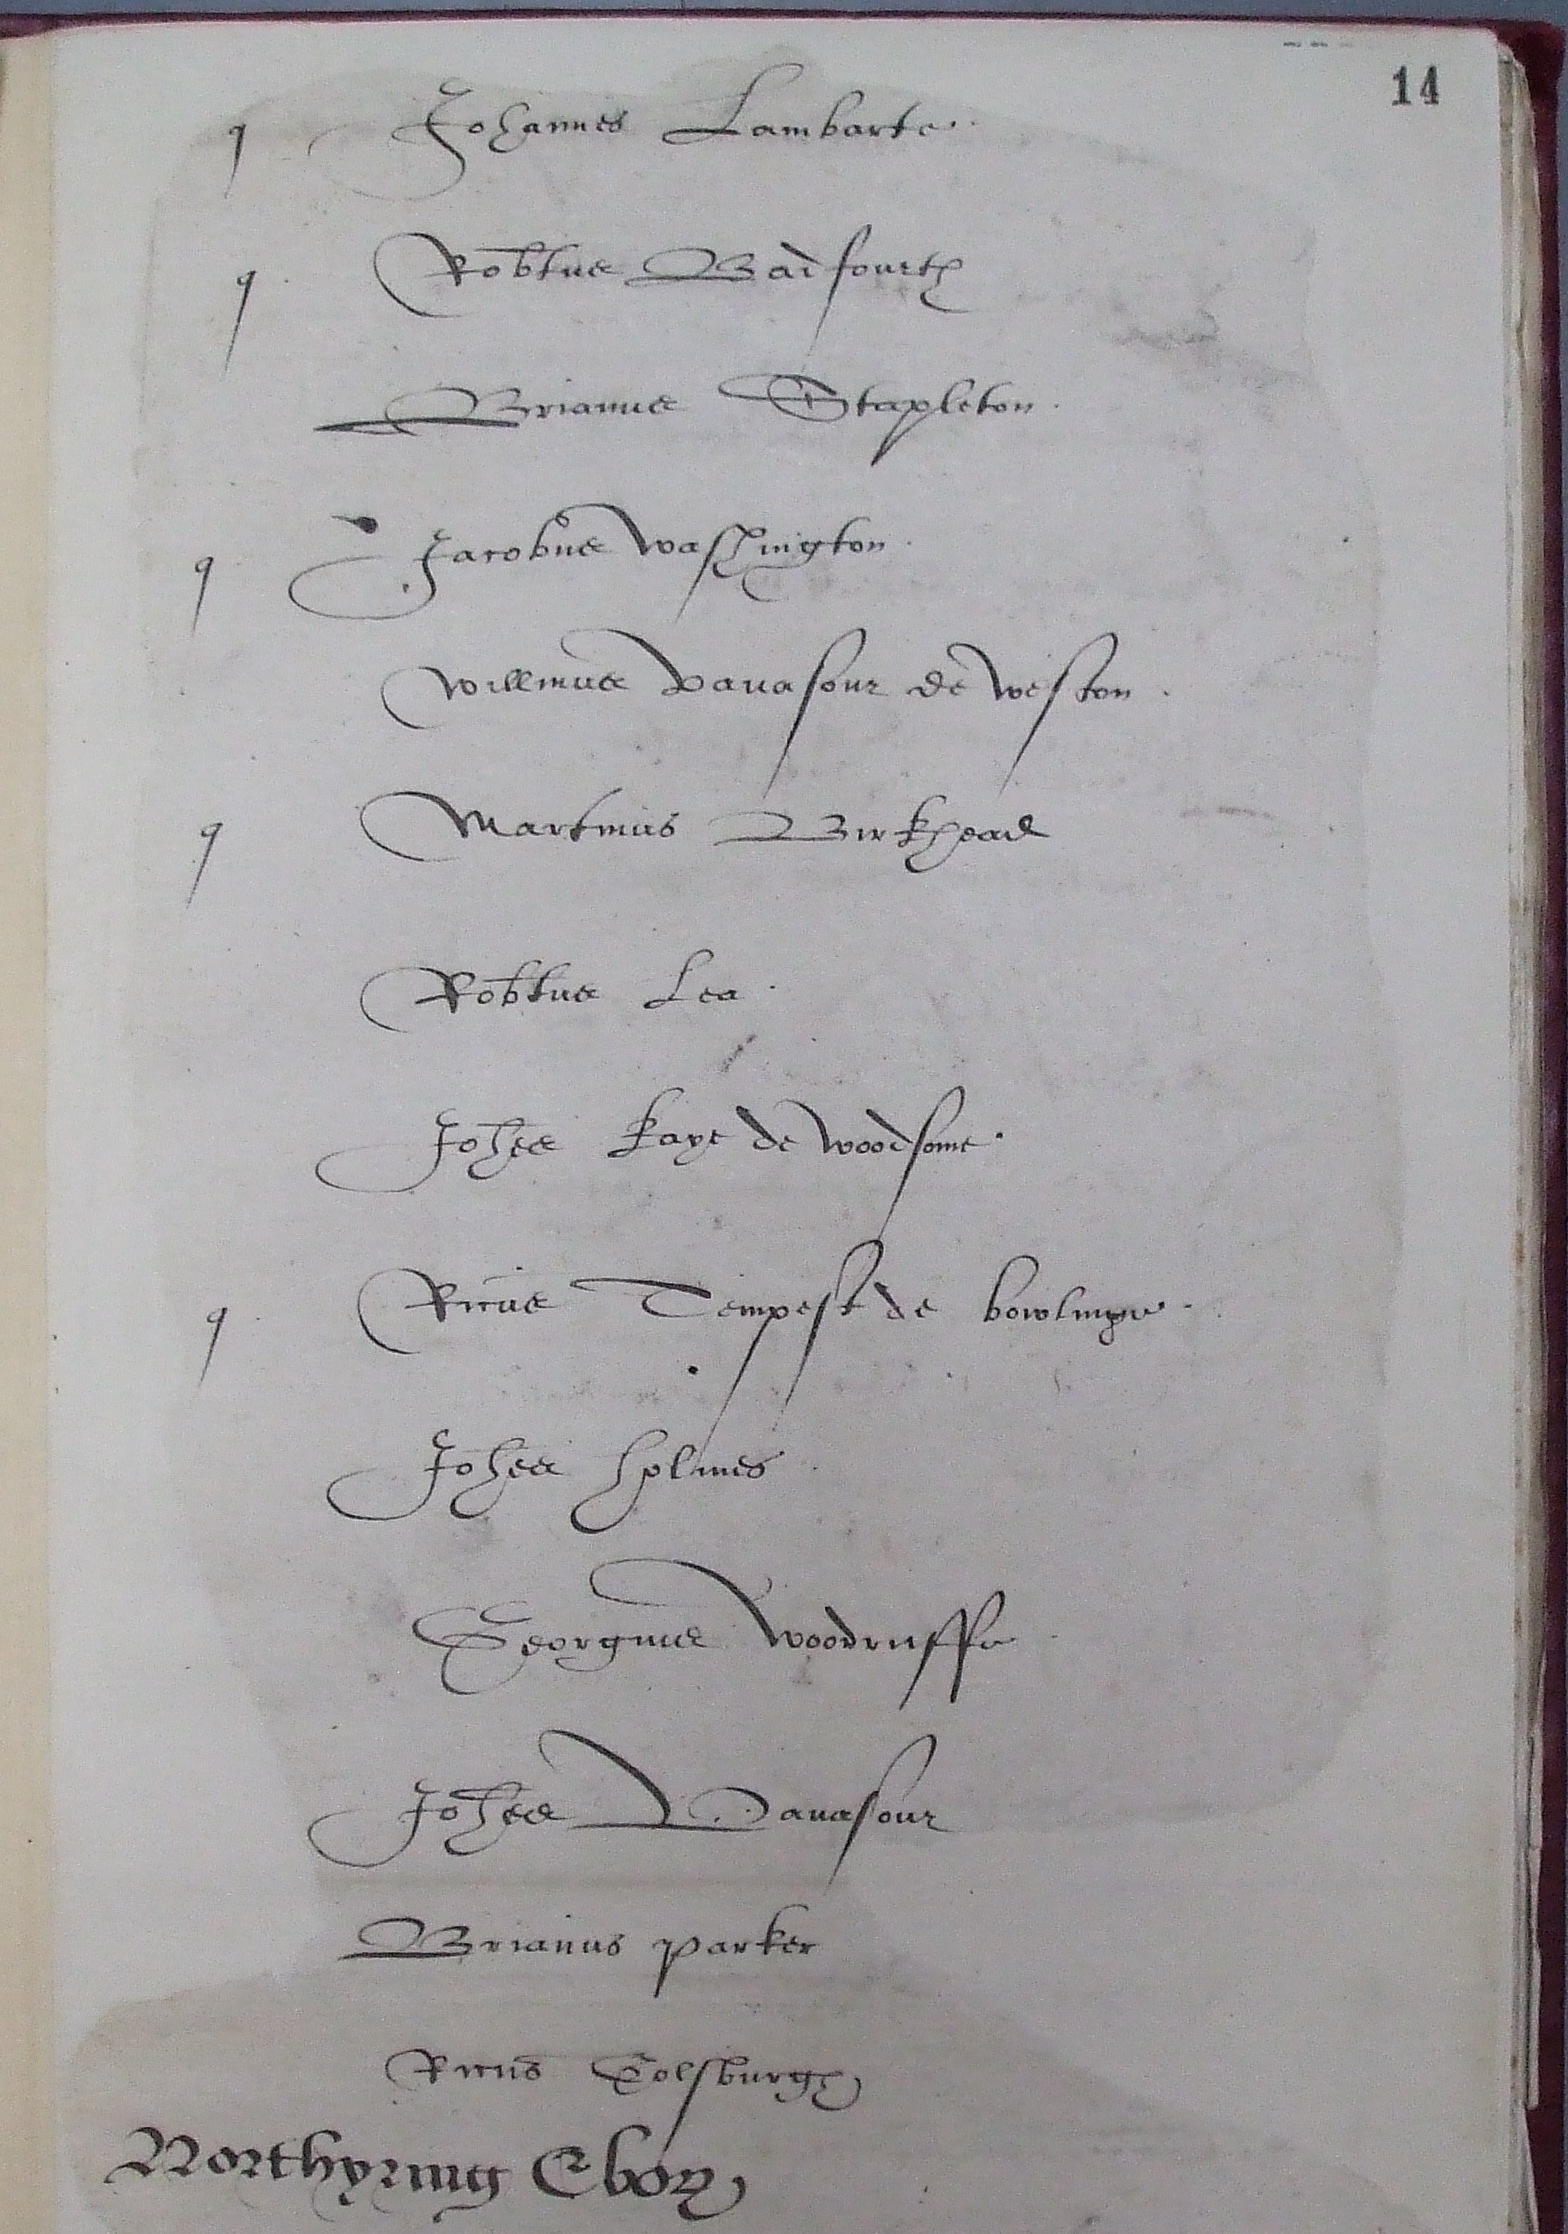 14
q Johannes Lambarte
q Robtus Badfourth
Brianus Stapleton
q Jacobus Washington
Willmus Vauasour de Weston
q Martinus Birkhead
Robtus Lea
Johes Kaye de Woodsome
q Ricus Tempest de bowlinge
Johes Holmes
Georgius Woodruffe
Johes Vauasour
Brianus Parker
Ricus Colsburgh
Northyring Ebor